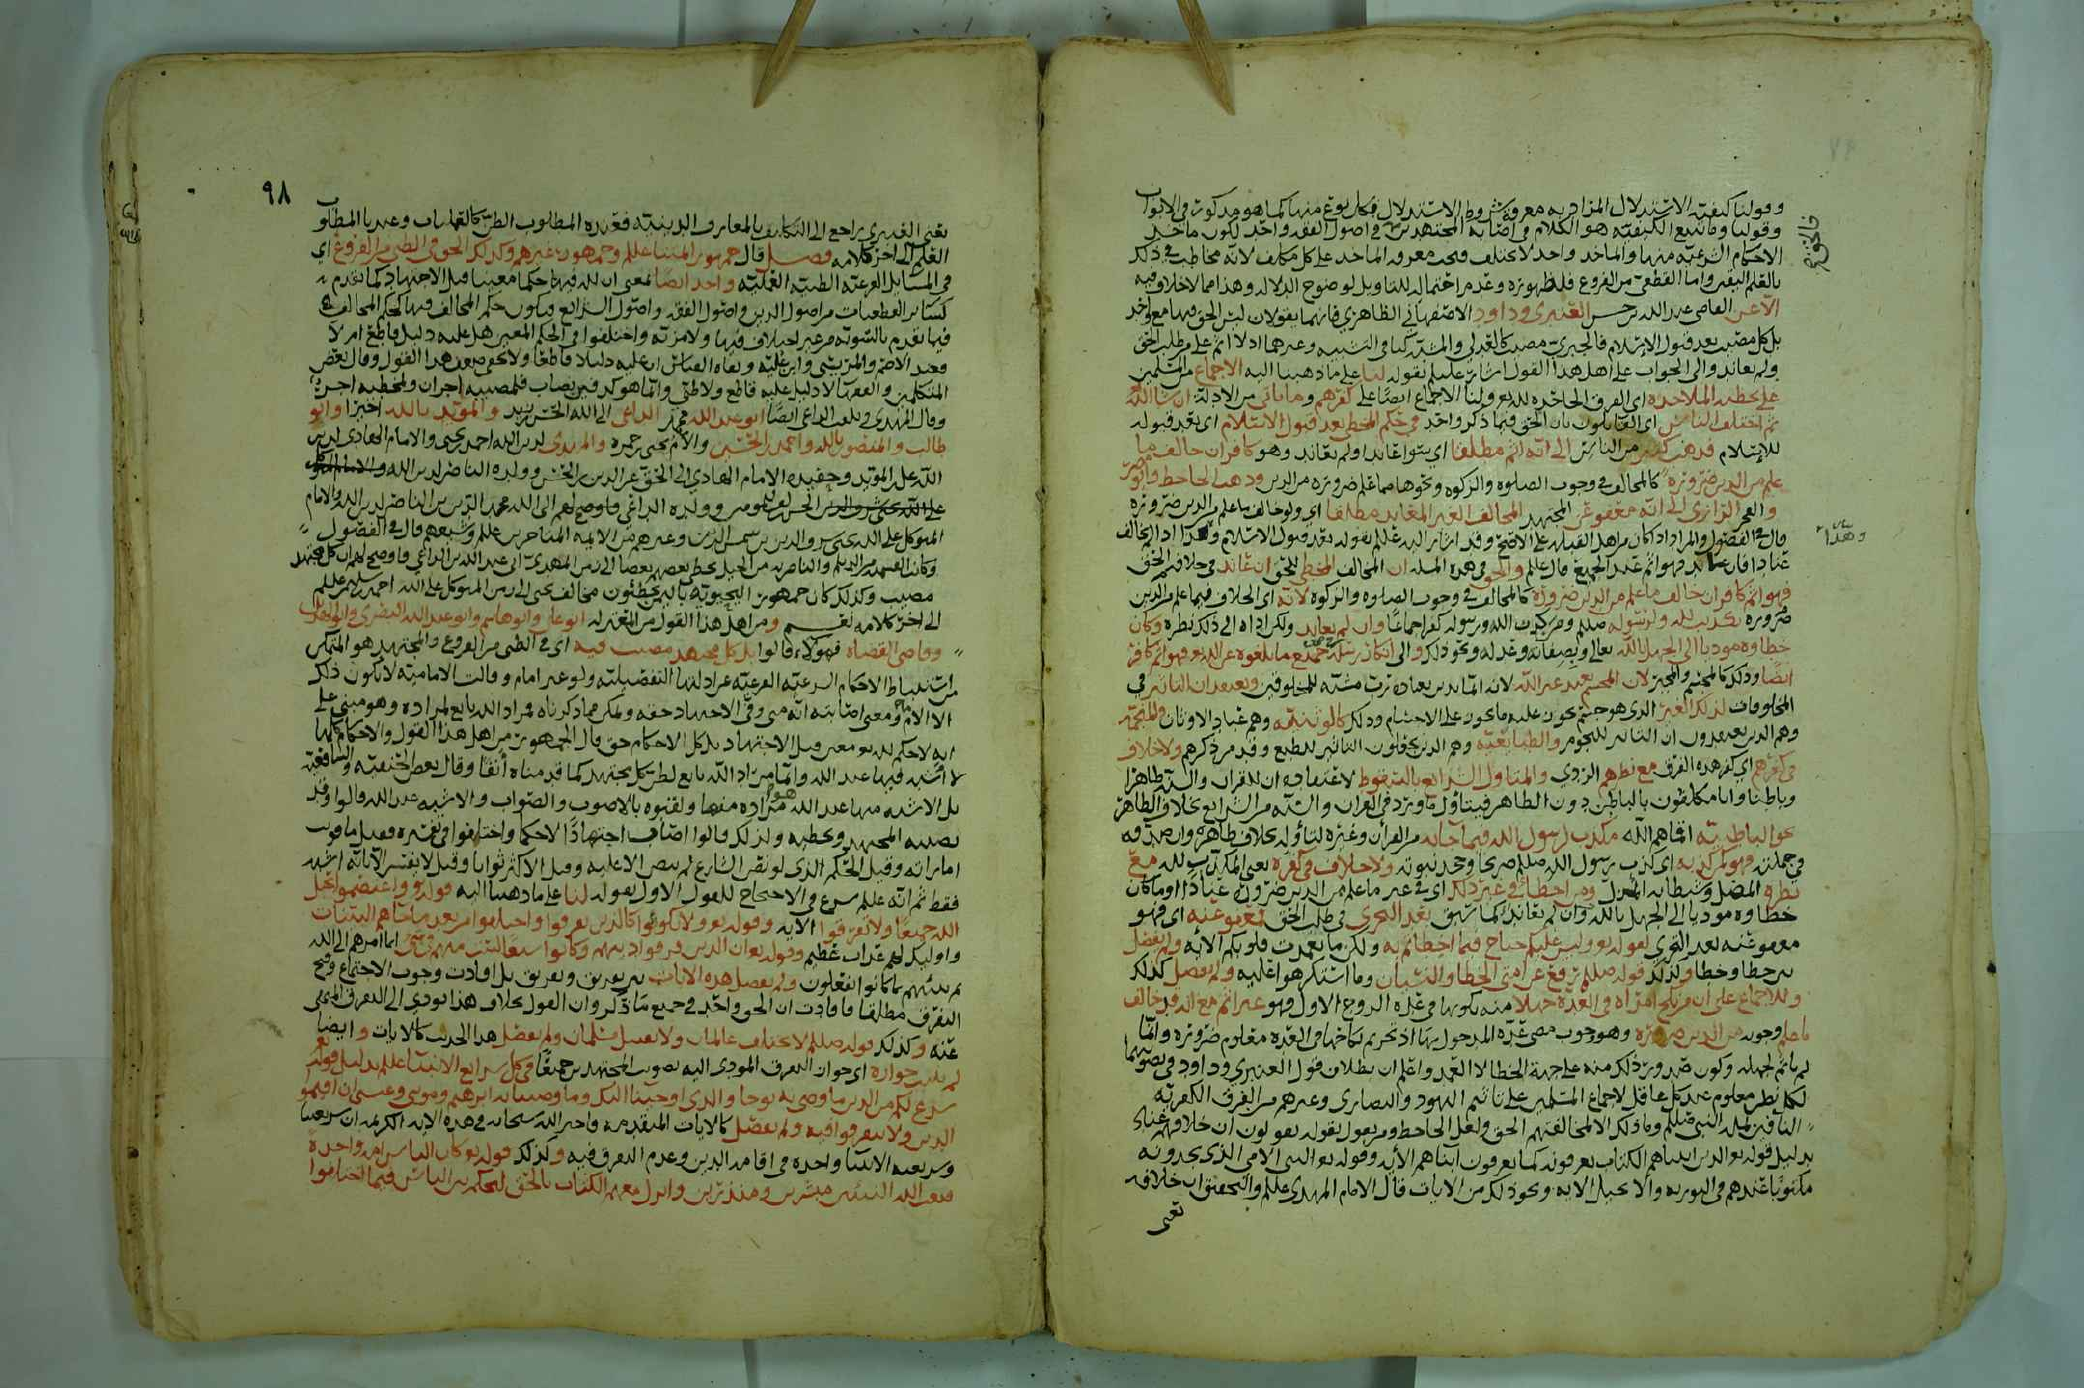 وقولنا كيفية الاستدلال المراد به معرفة شروط الاستدلال فكل نوع منها كما هو مذكور في الابواب
وقولنا وما يتبع الكيفية هو الكلام في اصابة المجتهدين في اصول الفقه واحد لكون ماخذ
الاحكام الشرعيه منها والماخذ واحد لا يختلف فيجب معرفة الماخذ على كل مكلف لانه مخاطب في ذلك
بالعلم اليقين واما القطعي من الفروع فلظهوره وعدم احتماله للتاويل لوضوح الدلاله وهذا مما لا خلاف فيه
الا عن القاضي عبد الله بن حسن العنبري وداود الاصفهاني الظاهري فانهما يقولان ليس الحق فيها مع واحد
بل كل مصيب بعد قبول الاسلام فالجبري مصيب كالعدلي والمشبه وغيرهما اذ لا اثم على من طلب الحق
ولم يعاند والى الجواب على اهل هذا القول اشار عليلم بقوله لنا على ما ذهبنا اليه الاجماع من المسلمين
على تخطئة الملاحدة اي الفرق الجاحده لله ولنا الاجماع ايضا على كفرهم وما ياتي من الادلة ان شا الله
ثم اختلف الناس اي القائلون بان الحق فيما ذكر واحد في حكم المخطي بعد قبول الاسلام اي بعد قبوله
للاسلام فذهب كثير من الناس الى انه اثم مطلقا اي سوا عاند او لم يعاند وهو كافر ان خالف ما
علم من الدين ضرورة كالمخالف في وجوب الصلوه والزكوه ونحوها مما علم ضروره من الدين وذهب الجاحظ وابو
والفخر الرازي الى انه معفو عن المجتهد المخالف الغير المعاند مطلقا اي ولو خالف ما علم من الدين ضروره
قال في الفصول والمراد اذا كان من اهل القبله على الاصح وقد اشار اليه عليلم بقوله بعد قبول الاسلام وهذا اذا لم يخالف
عنادا فان عاند فهو اثم عند الجميع قال عليلم والحق في هذه المسله ان المخالف المخطي للحق ان عاند في خلافه الحق
فهو اثم كافر ان خالف ما علم من الدين ضرورة كالمخالف في وجوب الصلوه والزكوه لانه اي الخلاف فيما علم من الدين
ضروره تكذيب لله ولرسوله صللم ومن كذب الله ورسوله كفر اجماعا وان لم يعاند ولكن اداه الى ذلك نظره وكان
خطاوه موديا الى الجهل بالله تعالى وبصفاته وعدله ونحو ذلك والى انكار رسله جميع ما بلغوه عن الله فهو اثم كافر
ايضا وذلك كالمجسم والمجبر لان المجسم يعبد غير الله لانه انما يدين بعباده رب مشبه للمخلوقين ويعتقد ان التاثير في
المخلوقات لذلك الغير الذي هو جسم يجوز عليه ما يجوز على الاجسام وذلك كالوثنية وهم عباد الاوثان والمنجمة
وهم الذين يعتقدون ان التاثير للنجوم والطبائعية وهم الذين يجعلون التاثير للطبع وقد مر ذكرهم ولا خلاف
في كفرهم اي كفر هذه الفرق مع نظرهم الردي والمتاول الشرائع بالسقوط لاعتقاده ان للقران والسنة ظاهرا
وباطنا وانا مكلفون بالباطن دون الظاهر فيتاول ما ورد في القران والسنه من الشرائع بخلاف الظاهر
نحو الباطنية اقماهم الله مكذب لرسول الله فيما جا به من القران وغيره لتاوله بخلاف ظاهره وان صدقه
في جملته فهو كمن كذبه اي كذب رسول الله صللم صريحا وجحد نبوته ولا خلاف في كفره يعني المكذب لله مع
نظره المضل وشيطانه المذل ومن اخطا في غير ذلك اي في غير ما علم من الدين ضرورة عنادا او ما كان
خطاوه موديا الى الجهل بالله وان لم يعاند كما سبق بعد التحري في طلب الحق فمعفو عنه اي فهو
معفو عنه بعد التحري لقوله تع وليس عليكم جناح فيما اخطاتم به ولكن ما تعمدت قلوبكم الايه ولم يفصل
بين خطا وخطا ولذلك قوله صللم رفع عن امتي الخطا والنسيان وما استكرهوا عليه ولم يفصل كذلك
وللاجماع على ان من نكح امراة في العدة جهلا منه بكونها في عدة الزوج الاول فهو غير اثم مع انه قد خالف
ما علم وجوبه من الدين ضرورة وهو وجوب مضي عدة المدخول بها اذ تحريم نكاحها في العدة معلوم ضرورة وانما
لم ياثم لجهله وكون صدور ذلك منه على جهة الخطا لا العمد واعلم ان بطلان قول العنبري وداود في تصويبهما
لكل نظر معلوم عند كل عاقل لاجماع المسلمين على تاثيم اليهود والنصارى وغيرهم من الفرق الكفرية
النافين لملة النبي صللم وما ذلك الا لمخالفتهم الحق ولعل الجاحظ ومن يقول بقوله يقولون ان خلافهم عناد
بدليل قوله تع الذين اتيناهم الكتاب يعرفونه كما يعرفون ابناهم الآيه وقوله تع النبي الامي الذي يجدونه
مكتوبا عندهم في التوريه والانجيل الايه ونحو ذلك من الايات قال الامام المهدي عليلم والتحقيق ان خلافه
يعني
فالحق مع
وهذا
٩٨
يعني العنبري راجع الى التكليف بالمعارف الدينية فعنده المطلوب الظن كالعمليات وعندنا المطلوب
العلم الى اخر كلامه فصل قال جمهور ائمتنا عليلم وجمهور غيرهم وكذلك الحق في الظني من الفروع اي
في المسايل الفرعيه الظنيه العملية واحد ايضا بمعنى ان لله فيها حكما معينا قبل الاجتهاد كما تقدم
كسائر القطعيات من اصول الدين واصول الفقه واصول الشرائع ويكون حكم المخالف فيها كحكم المخالف
فيما تقدم بالتسويه من غير اختلاف فيها ولا مزيه واختلفوا في الحكم المعين هل عليه دليل قاطع ام لا
فعند الاصم والمريسي وابن علية ونفاة القياس ان عليه دليلا قاطعا ولا يخفى ضعف هذا القول وقال بعض
المتكلمين والفقها لا دليل عليه قاطع ولا ظني وانما هو كدفين يصاب فلمصيبه اجران ولمخطيه اجر
وقال المهدي ويلقب الداعي ايضا ابو عبد الله محمد الداعي الى الله الحسن بن زيد والمؤيد بالله اخيرا وابو
طالب والمنصور بالله واحمد بن الحسين والامام يحيى بن حمزه والمهدي لدين الله احمد بن يحيى والامام الهادي لدين
الله علي بن المؤيد وحفيده الامام الهادي الى الحق عز الدين بن الحسن وولده الناصر لدين الله
وولده الداعي
المتوكل على الله يحيى شرف الدين بن شمس الدين وغيرهم من الايمه المتاخرين عليلم وشيعتهم قال في الفصول
مصيب وكذلك كان جمهور اليحيوية باليمن يخطئون مخالف يحيى الى زمن المتوكل على الله احمد بن سليمن عليلم
الى اخر كلامه نعم ومن اهل هذا القول من المعتزله ابو علي وابو هاشم وابو عبد الله البصري وابو الهذيل
وقاضي القضاة فهؤلاء قالوا بل كل مجتهد مصيب فيه اي في الظني من الفروع والمجتهد هو المتمكن
من استنباط الاحكام الشرعيه الفرعيه عن ادلتها التفصيليه ولو غير امام وقالت الامامية لا يكون ذلك
الا الامام ومعنى اصابته انه متى وفى الاجتهاد حقه ولم يكن مما ذكرناه فمراد الله تابع لمراده وهو مبني على
انه لا حكم لله تع معين قبل الاجتهاد بل كل الاحكام حق قال الجمهور من اهل هذا القول والاحكام كلها
لا اشبه فيها عند الله وانما مراد الله تابع لظن كل مجتهد كما قدمناه آنفا وقال بعض الحنفية والشافعية
بل الاشبه منها عند الله هو مراده منها ولقبوه بالاصوب والصواب والاشبه عند الله قالوا وقد
يصيبه المجتهد ويخطيه ولذلك قالوا اصاب اجتهادا لا حكما واختلفوا في تفسيره فقيل ما قويت
اماراته وقيل الحكم الذي لو نص الشارع لم ينص الا عليه وقيل الاكثر ثوابا وقيل لا يفسر الا بانه اشبه
فقط ثم انه عليلم شرع في الاحتجاج للقول الاول بقوله لنا على ما ذهبنا اليه قوله تع واعتصموا بحبل
الله جميعا ولا تفرقوا الآيه وقوله تع ولا تكونوا كالذين تفرقوا واختلفوا من بعد ما جاهم البينات
واوليك لهم عذاب عظيم وقوله تع ان الذين فرقوا دينهم وكانوا شيعا لست منهم في شي انما امرهم الى الله
ثم ينبئهم بما كانوا يفعلون ولم يفصل هذه الايات بين تفريق وتفريق بل افادت وجوب الاجتماع وقبح
التفرق مطلقا فافادت ان الحق واحد في جميع ما ذكر وان القول بخلاف هذا يودي الى التفرق المنهي
عنه وكذلك قوله صللم لا يختلف عالمان ولا يقتتل مسلمان ولم يفصل هذا الحديث كالايات وايضا
لم يثبت جوازه اي جواز التفرق المودي اليه تصويب المجتهدين جميعا في كل شرائع الانبيا عليلم بدليل قوله تع
شرع لكم من الدين ما وصى به نوحا والذي اوحينا اليك وما وصينا به ابرهيم وموسى وعيسى ان اقيموا
الدين ولا تتفرقوا فيه ولم يفصل كالايات المتقدمه واخبر الله سبحانه في هذه الايه الكريمه ان شريعتنا
وشريعة الانبيا واحدة في اقامة الدين وعدم التفرق فيه وكذلك قوله تع كان الناس امة واحدة
فبعث الله النبيين مبشرين ومنذرين وانزل معهم الكتاب بالحق ليحكم بين الناس فيما اختلفوا